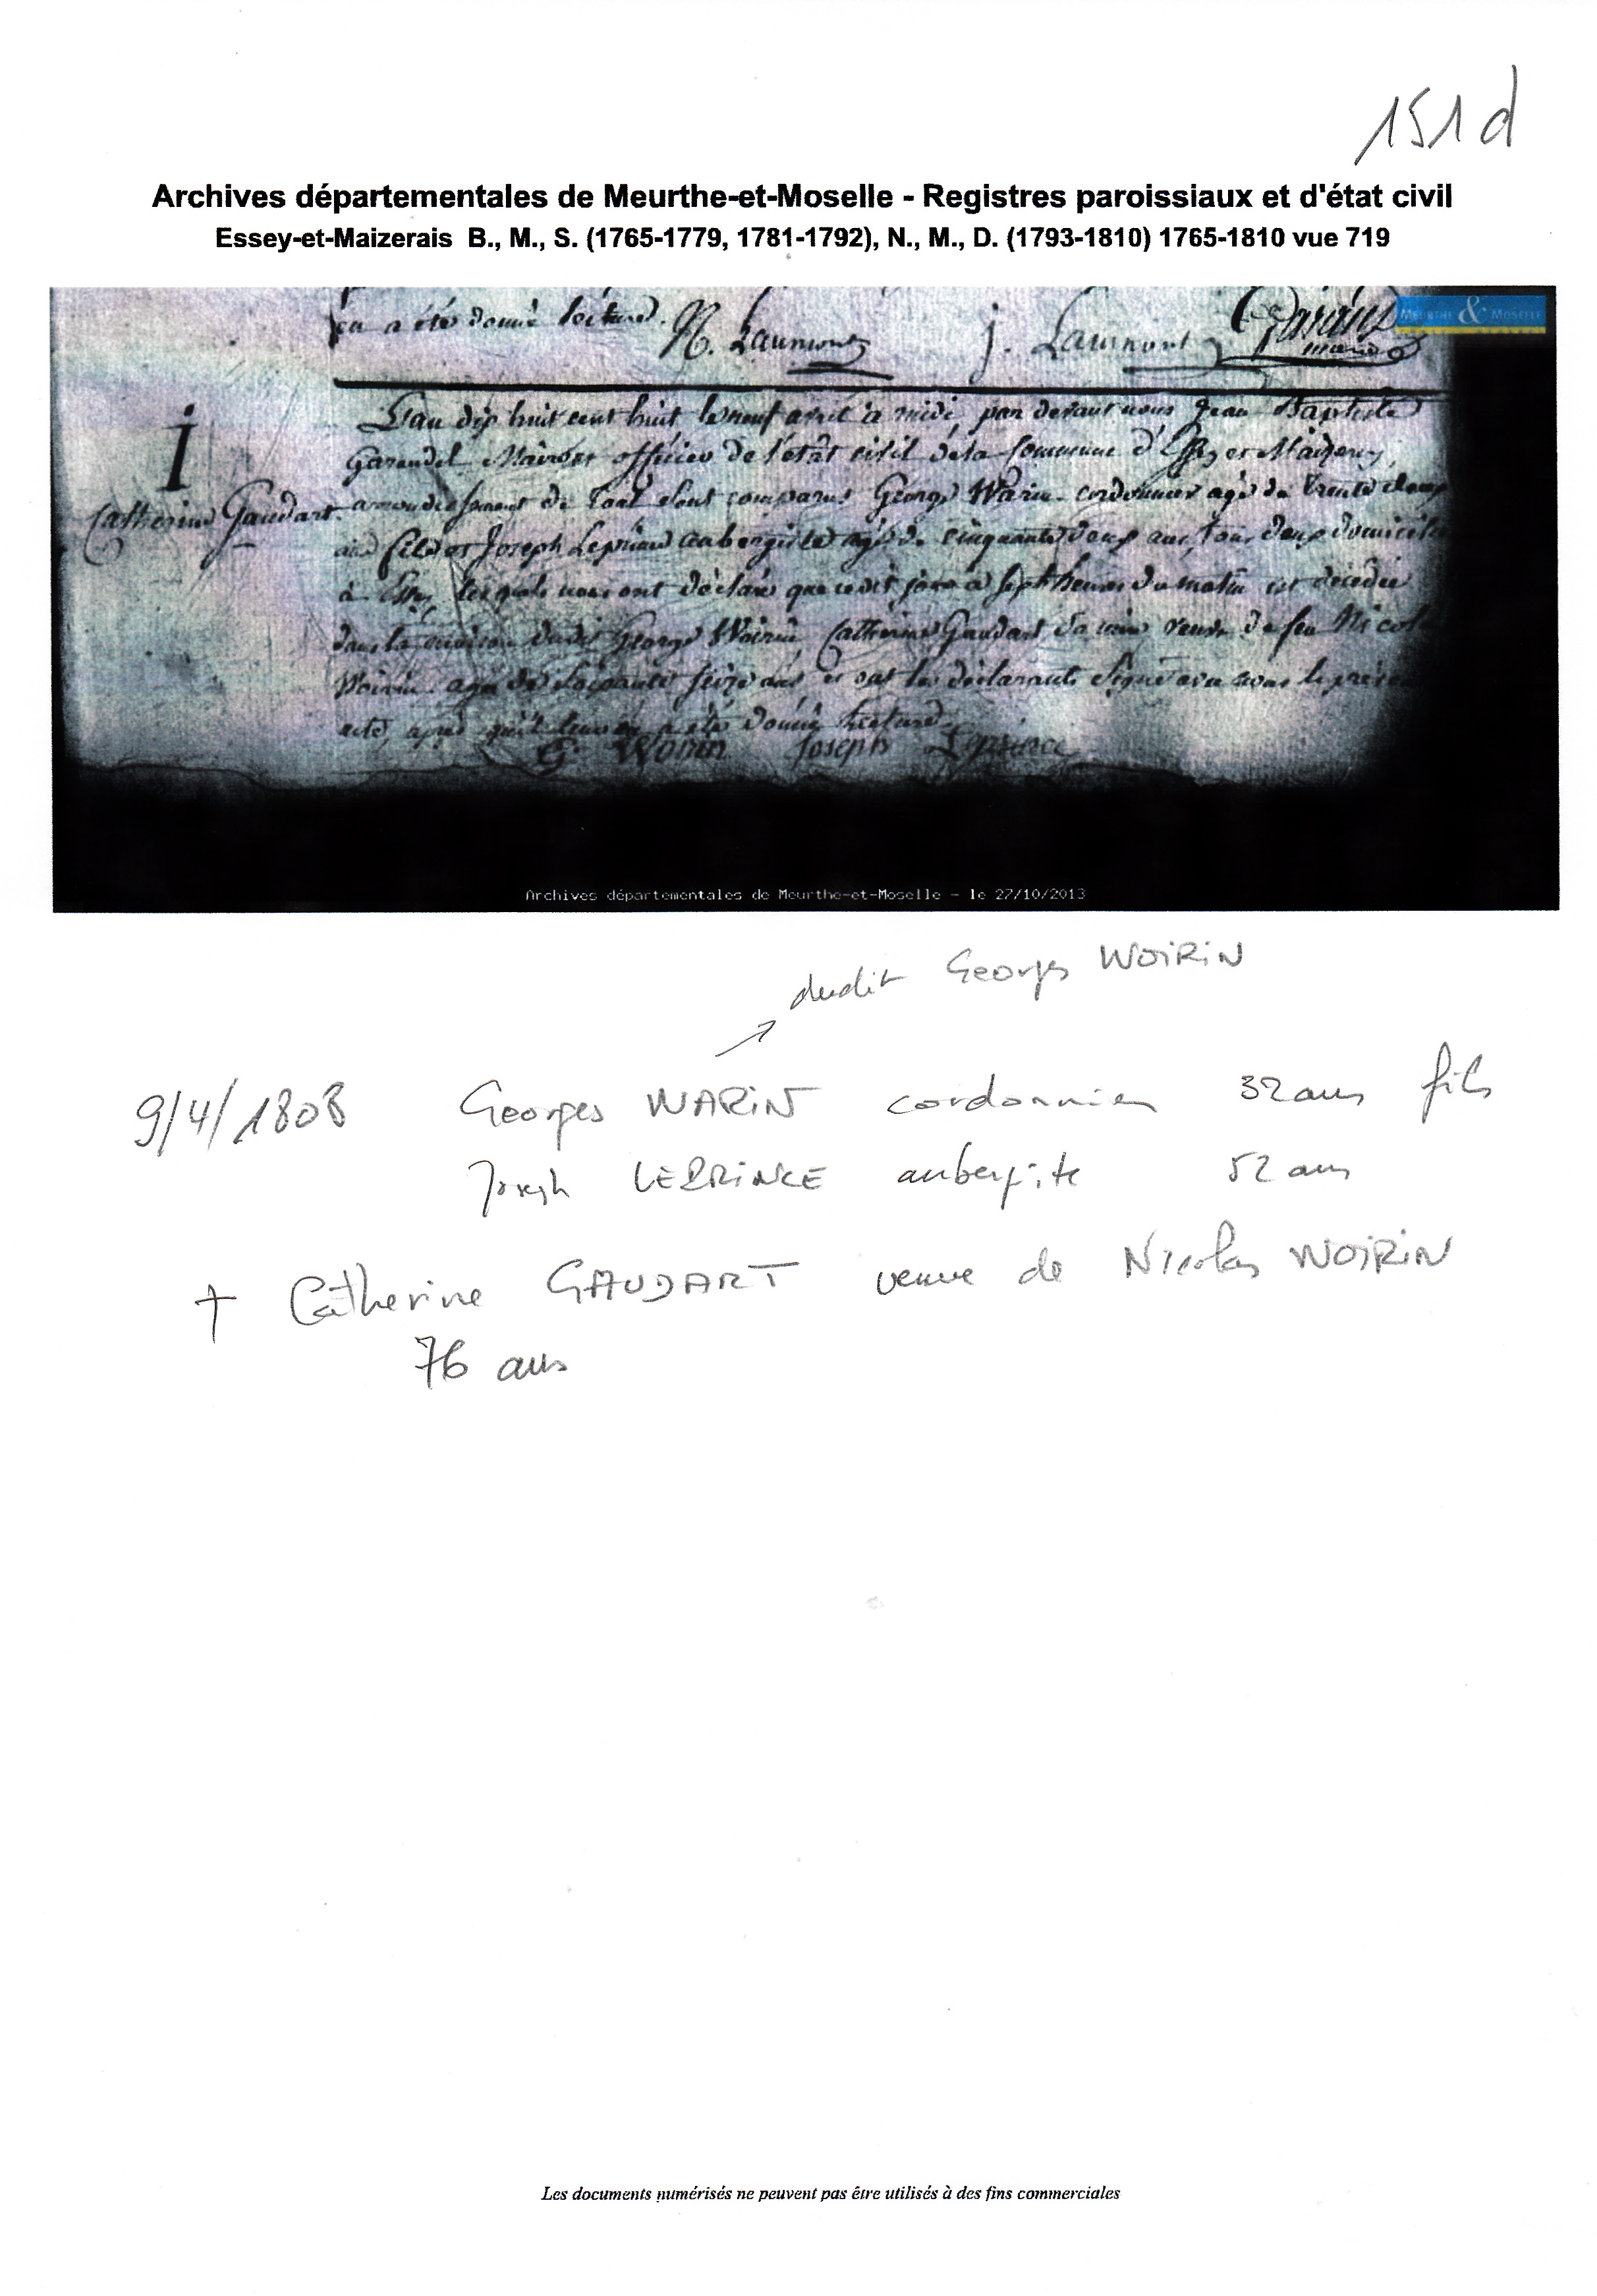 151d
Archives départementales de Meurthe-et-Moselle - Registres paroissiaux et d'état civil
Essey-et-Maizerais B., M., S. (1765-1779, 1781-1792), N., M., D. (1793-1810) 1765-1810 vue 719
MEURTHE & MOSELLE
en a été donné lecture. N. Laumont j. Laumont
L'an dix huit cent huit le neuf avril à midi, par devant nous Jean Baptiste
Garaudel Maire et officier de l'état civil de la Commune d'Essey et Maizerey,
1
Catherine Gaudart
arrondissement de Toul sont comparus George Warin cordonnier agé de trente deux
ans fils et Joseph Leprince aubergiste agé de cinquante deux ans, tous deux domiciliés
à Essey, lesquels nous ont déclaré que cedit jour à sept heures du matin est décédée
dans la maison dudit George Woirin Catherine Gaudart veuve de feu Nicolas
Woirin agé de soixante seize ans et ont les déclarants signé avec nous le présent
acte, après qu'il leur en a été donné lecture.
G. Woirin Joseph Leprince
Archives départementales de Meurthe-et-Moselle - le 27/10/2013
dudit Georges WOIRIN
9/4/1808 Georges WARIN cordonnier 32 ans fils
Joseph LEPRINCE aubergiste 52 ans
† Catherine GAUDART veuve de Nicolas WOIRIN
76 ans
Les documents numérisés ne peuvent pas être utilisés à des fins commerciales